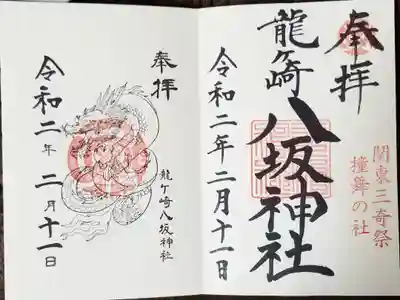 奉拝
関東三奇祭
撞舞の社
龍ヶ崎
八坂神社
令和二年二月十一日
奉拝
龍ケ崎八坂神社
令和二年二月十一日